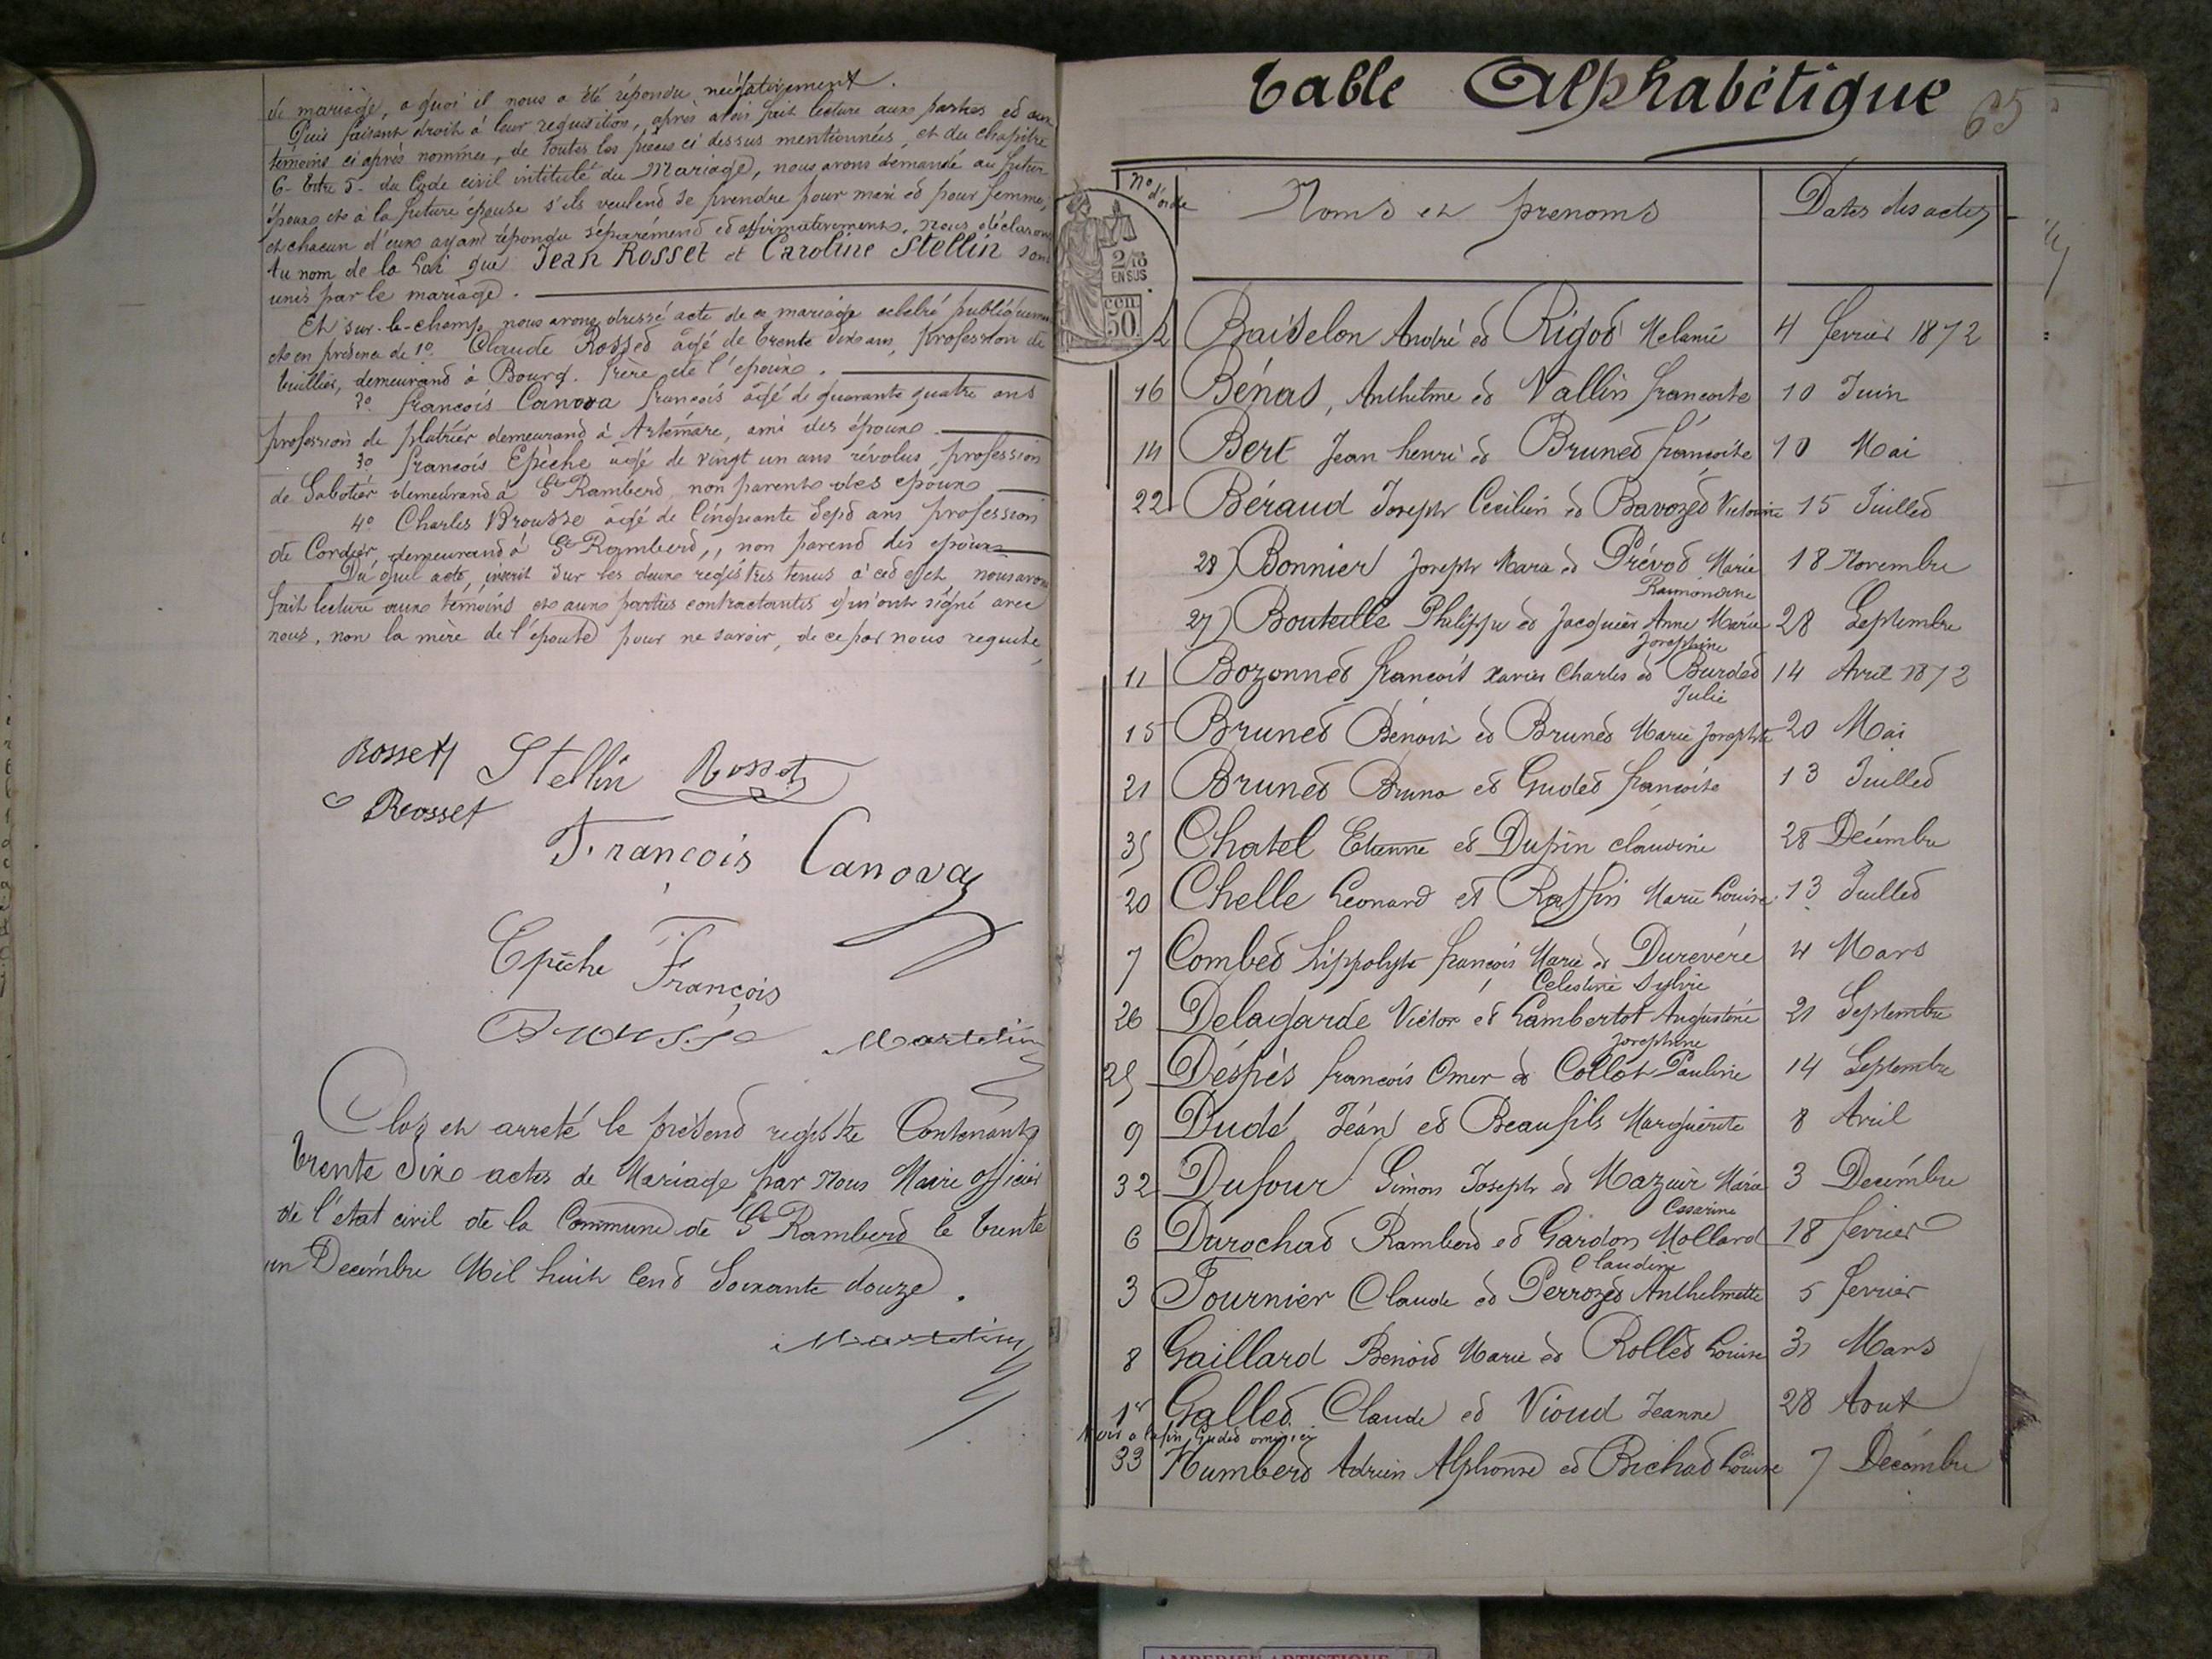 de mariage, a quoi il nous a été répondu négativement.
Puis faisant droit à leur requisition, après avoir fait lecture aux parties et aux
témoins ci après nommés, de toutes les pièces ci dessus mentionnées, et du chapitre
6 - titre 5 - du Code civil intitulé du Mariage, nous avons demandé au futur
époux et à la future épouse s'ils veulend se prendre pour mari et pour femme,
et chacun d'eux ayant répondu séparément et affirmativement, nous déclarons
au nom de la Loi que Jean Rosset et Caroline Stellin sont
unis par le mariage.
Et sur-le-champ nous avons dressé acte de ce mariage celebré publiquement
et en présence de 1o Claude Rosset âgé de trente six ans, profession de
tuillier, demeurand à Bourg. frère de l'époux.
2o françois Canova françois âgé de quarante quatre ans
profession de platrier demeurand à Artemare, ami des époux
3o françois Epèche agé de vingt un ans révolus, profession
de Sabotier demeurand à St Ramberd non parent des époux
4o Charles Brousse âgé de Cinquante Sept ans profession
de Cordier demeurand à St Ramberd,, non parend des époux
Du quel acte, inscrit sur les deux registres tenus à cet effet, nous avons
fait lecture aux témoins et aux parties contractantes qui ont signé avec
nous, non la mère de l'épouse pour ne savoir, de ce par nous requise,
Rosset Stellin Rosset
C Rosset
François Canova
Epèche François
Brousse Martelin
Clos et arreté le présend registre Contenant
trente Six actes de Mariage par Nous Maire officier
de l'etat civil de la Commune de St Ramberd le trente
un Decémbre Mil huit Cend Soixante douze.
Martelin
Table Alphabétique
65
No d'ordre Noms et prenoms Dates des actes
2/10 EN SUS
50 cen
2 Baiselon André et Rigod Melanie 4 fevrier 1872
16 Bénas, Anthelme et Vallin francoise 10 Juin
14 Bert Jean henri et Brunet françoise 10 Mai
22 Béraud Joseph Cecilien et Bavozet Victorine 15 Juillet
28) Bonnier Joseph Marie et Prévod Marie 18 Novembre
Raimondine
27) Bouteille Philippe et Jacquier Anne Marie 28 Septembre
Josephine
11 Bozonnet francois Xavier Charles et Burdet 14 Avril 1872
Julie
15 Brunet Benoit et Brunet Marie Josephte 20 Mai
21 Brunet Bruno et Gudet francoise 13 Juillet
35 Chatel Etienne et Dupin claudine 28 Decémbre
20 Chelle Leonard et Raffin Marie Louise 13 Juillet
7 Combet hippolyte françois Marie et Durevére 4 Mars
Celestine Sylvie
26 Delagarde Victor et Lambertot Augustine 21 Septembre
Josephine
25 Déspès francois Omer et Collot Pauline 14 Septembre
9 Dudé Jéan et Beaufils Marguerite 8 Avril
32 Dufour Simon Joseph et Mazuir Marie 3 Decémbre
Cesarine
6 Durochad Ramberd et Gardon Mollard 18 fevrier
Claudine
3 Fournier Claude et Perrozet Anthelmette 5 fevrier
8 Gaillard Benoid Marie et Rollet Louise 31 Mars
1r Gallet Claude et Vioud Jeanne 28 Aout
Voir a la fin Gudet omis ici
33 Humberd Adrien Alphonse et Bichad Louise 7 Decémbre